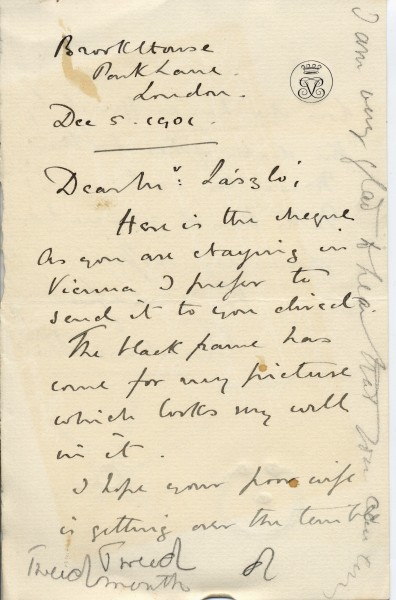 Brook House
Park Lane.
London.
Dec 5. 1901.
Dear Mr: László,
Here is the cheque
As you are staying in
Vienna I prefer to
send it to you direct
The black frame has
come for my picture
which looks very well
in it.
I hope your poor wife
is getting over the terrible
Tweed Tweed
mouth
I am very glad to hear that you are